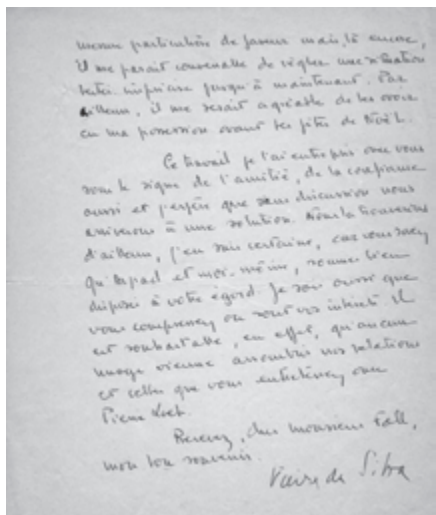 mesure particulière de faveur mais, là encore,
il me parait convenable de régler une situation
restée imprécise jusqu'à maintenant. Par
ailleurs, il me serait agréable de les avoir
en ma possession avant les fêtes de Noël.
Ce travail je l'ai entrepris avec vous
sous le signe de l'amitié, de la confiance
aussi et j'espère que sans discussion nous
arriverons à une solution. Nous la trouverons
d'ailleurs, j'en suis certaine, car vous savez
qu'Arpad et moi-même, sommes bien
disposés à votre égard. Je sais aussi que
vous comprenez où sont vos intérêts. Il
est souhaitable, en effet, qu'aucun
nuage vienne assombrir nos relations
et celles que vous entretenez avec
Pierre Loeb.
Recevez, cher Monsieur Fall,
mon bon souvenir.
Vieira da Silva